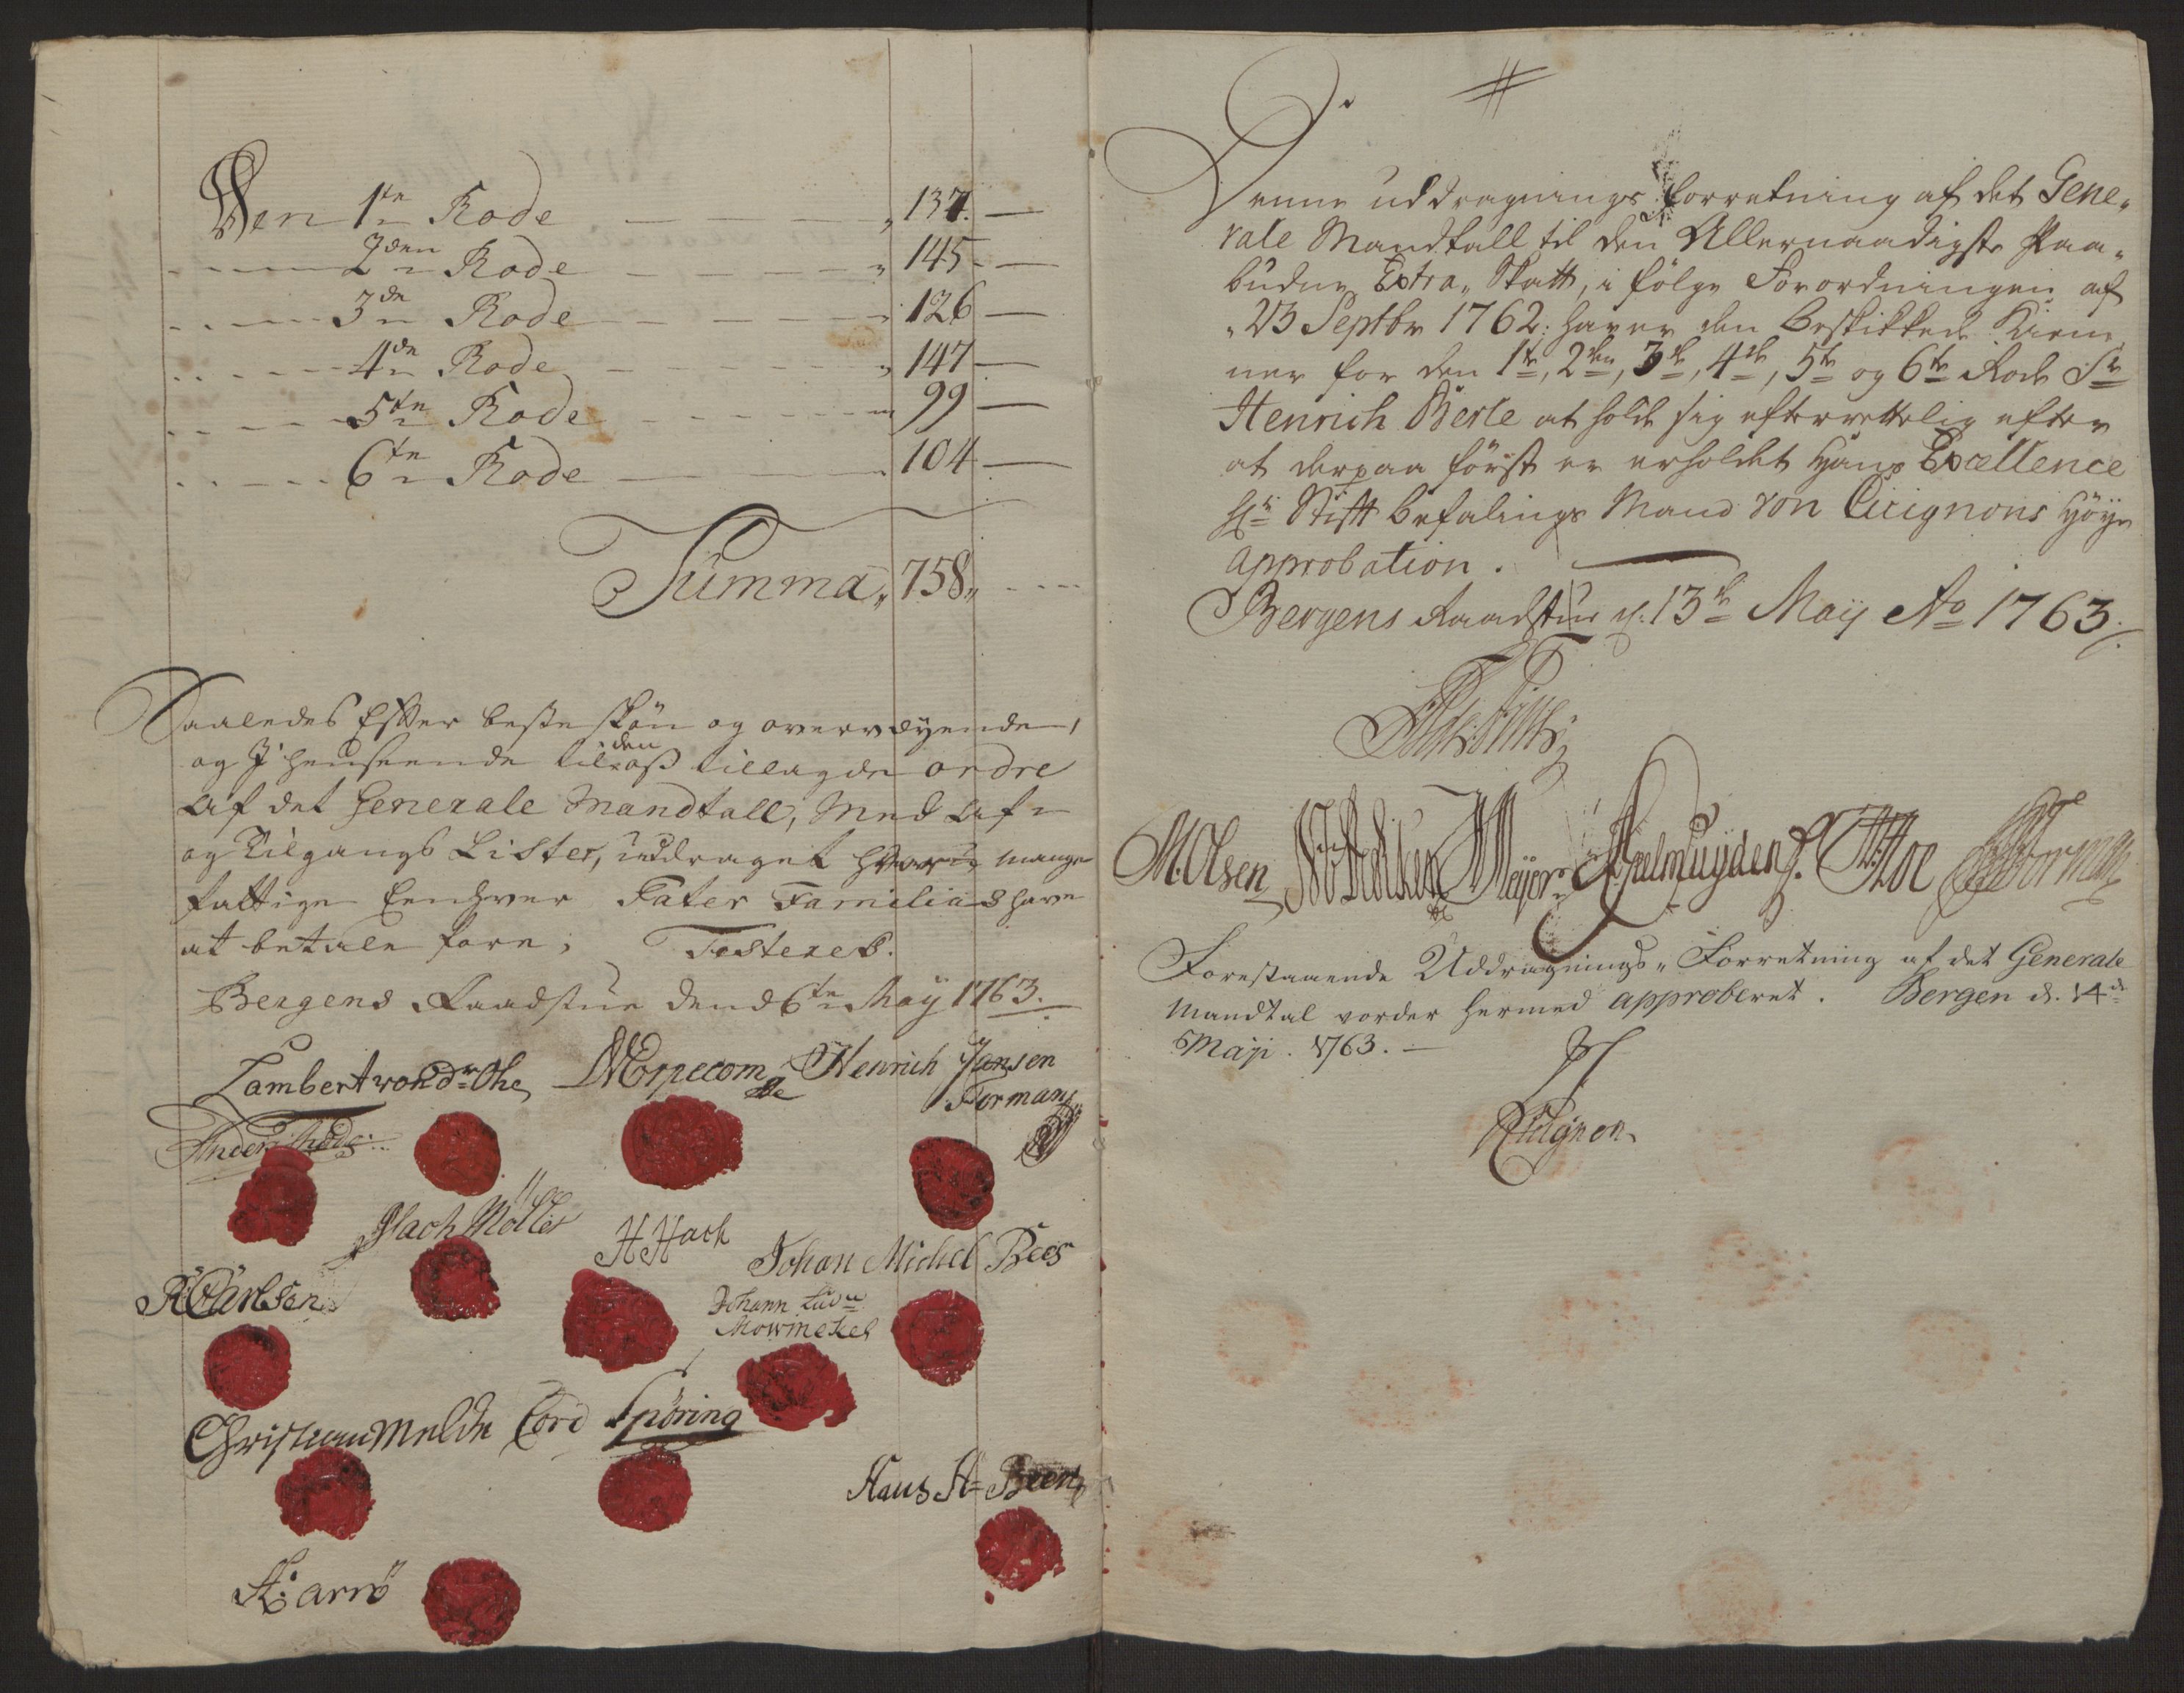 Den 1te Rode — — — „ 137. —
2den Rode — — — „ 145. —
3de Rode — — — „ 126 —
4de Rode — — — „ 147 —
5te Rode — — — „ 99 —
6te Rode — — — „ 104 —
Summa „ 758 „
Saaledes Efter beste skiøn og overvæyende,
og J henseende til den oß tillagde ordre
Af det Generale Mandtall, Med Af-
og Tilgangs Lister, uddraget hvor mange
fattige Eenhver Pater Familias have
at betale fore; Testeres.
Bergens Raadstue dend 6te Maÿ 1763.
Lambert von dr Ohe Henrich Jansen
Forman
Møller
H Hach
Johan Michel Bees
R Carlsen
Johann Ludw
Mowinckel
Christian Melde Cord Spöring
Hans H= Beer
#
Denne uddragnings forretning af det Gene-
rale Mandtall til den Allernaadigste Paa-
budne Extra„ Skatt, i følge Forordningen af
23 Septbr 1762: haver den beskikkede Kiem
ner for den 1te, 2den, 3de, 4de, 5te og 6te Rode Sr
Henrich Berle at holde sig efterrettelig efter
at derpaa først er erholdet Hans Excellence
Hr Stift befalings Mand von Cicignons Høye
approbation.
Bergens Raadstue d. 13de Maij Ao 1763.
M. Olsen Meyer
Forestaaende Uddragnings„ Forretning af det Generale
Mandtal vorder hermed approberet. Bergen d. 14de
Maji. 1763. —
Cicignon